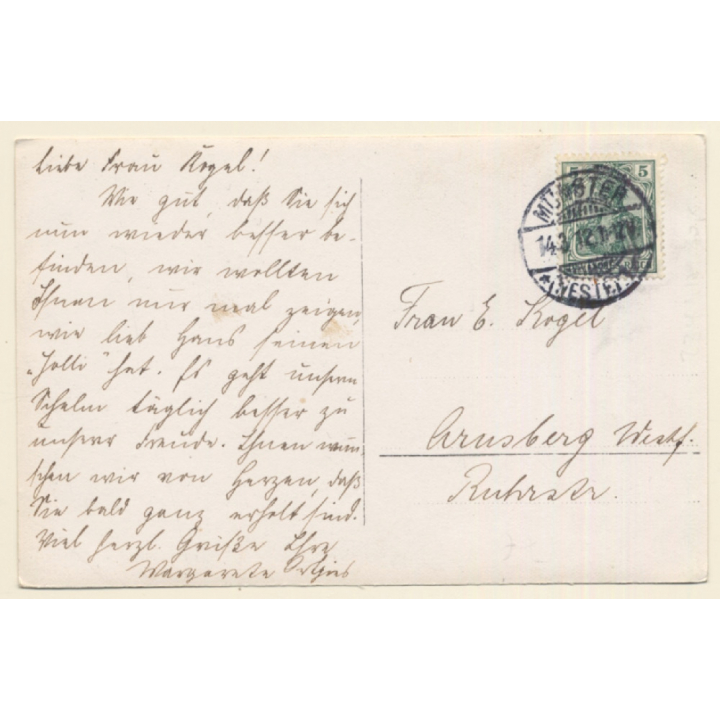 Liebe Frau Kogel!
Wie gut, daß Sie sich
nun wieder besser be-
finden, wir wollten
Ihnen nur mal zeigen,
wie lieb Hans seinen
„Holli" hat. Es geht unserm
Schelm täglich besser zu
unserer Freude. Ihnen wün-
schen wir von Herzen, daß
Sie bald ganz erholt sind.
Viel herzl. Grüße Ihre
Margarete
5 5
MÜNSTER
14.3.12.1-2N.
*(WESTF.)
Frau E. Kogel
Arnsberg Westf.
Ruhrstr.